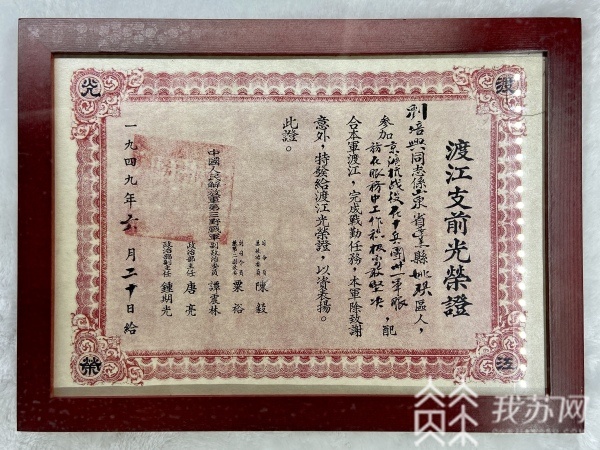 渡江支前光榮證
同志係山東省 縣 區人，
參加京滬杭戰役在十兵團卅一軍服
務在服務中工作積極勇敢堅决，配
合本軍渡江，完成戰勤任務，本軍除致謝
意外，特發給渡江光榮證，以資表揚。
此證。
司令員
陳毅
副司令員
粟裕
中國人民解放軍第三野戰軍副政治委員 譚震林
政治部主任 唐亮
政治部副主任 鍾期光
一九四九年六月二十日給
光
渡
榮
江
我苏网